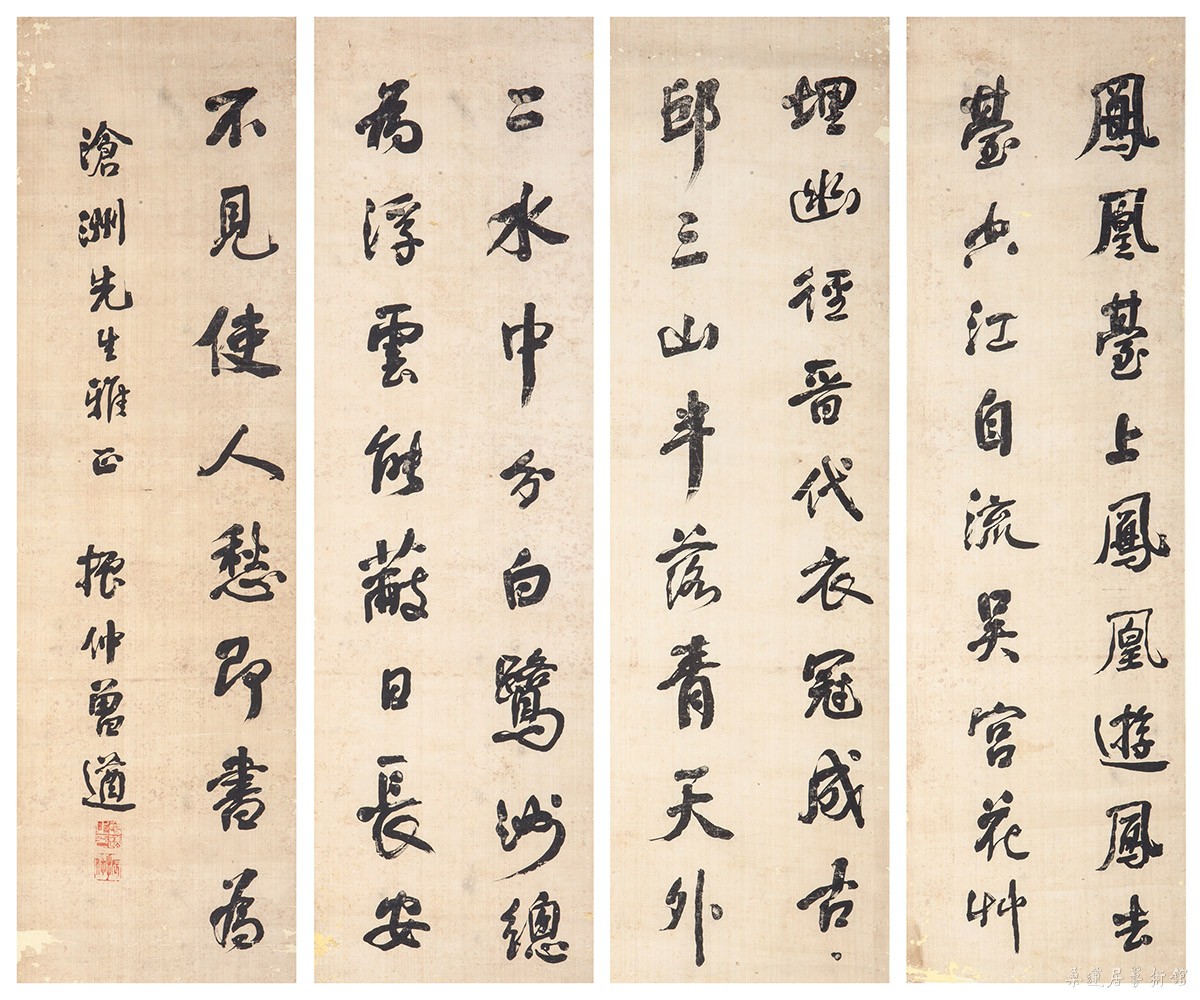 鳳凰臺上鳳凰遊鳳去
臺空江自流吳宮花艸
埋幽徑晉代衣冠成古
邱三山半落青天外
二水中分白鷺洲總
為浮雲能蔽日長安
不見使人愁即書為
滄洲先生雅正 振仲曾遒
桑蓮居藝術館